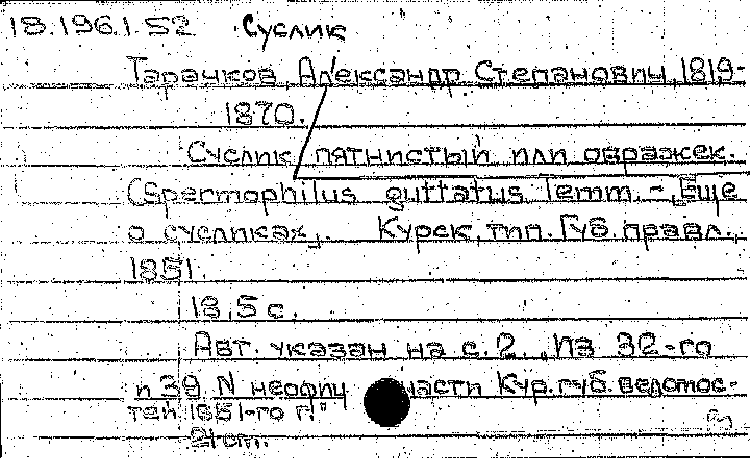 18.196.1.52 Суслик
Тарачков, Александр Степанович, 1819-
1870.
Суслик пятнистый или овражек.
(Spermophilus guttatus Temm. - „Еще
о сусликах„. Курск, тип. Губ. правл.,
1851.
18,5 с.
Авт. указан на с. 2. „Из 32-го
и 39 N неофиц части Кур. губ. ведомос-
тей 1851-го г."